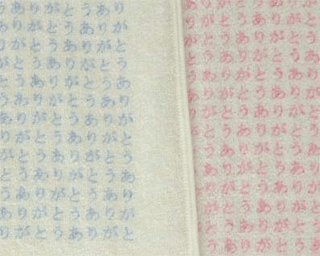 うありがとうあり
ありがとうありが
りがとうありがと
がとうありがとう
とうありがとうあ
うありがとうあり
ありがとうありが
りがとうありがと
がとうありがとう
とうありがとうあ
うありがとうあり
ありがとうありが
りがとうありがと
りがとうありが
がとうありがと
とうありがとう
うありがとうあ
ありがとうあり
りがとうありが
がとうありがと
とうありがとう
うありがとうあ
ありがとうあり
りがとうありが
がとうありがと
とうありがとう
うありがとうあ